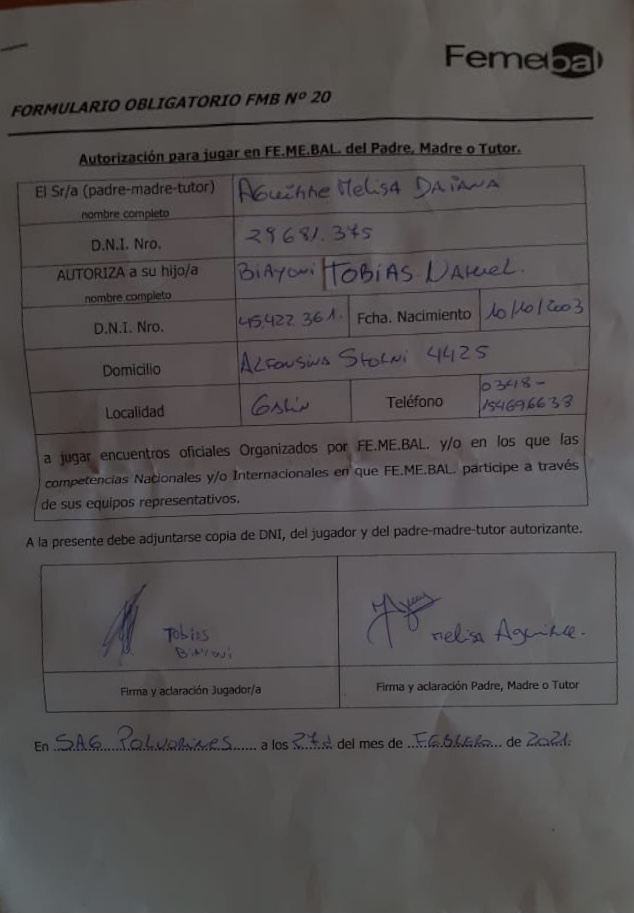 Femebal
FORMULARIO OBLIGATORIO FMB Nº 20
Autorización para jugar en FE.ME.BAL. del Padre, Madre o Tutor.
El Sr/a (padre-madre-tutor) Aguirre Melisa Daiana
nombre completo
D.N.I. Nro. 29681.375
AUTORIZA a su hijo/a BIAYONI TOBIAS NAHUEL.
nombre completo
D.N.I. Nro. 45.422 361. Fcha. Nacimiento 10/10/2003
Domicilio ALFONSINA STORNI 4425
Localidad Teléfono 0348-
154696633
a jugar encuentros oficiales Organizados por FE.ME.BAL. y/o en los que las
competencias Nacionales y/o Internacionales en que FE.ME.BAL. participe a través
de sus equipos representativos.
A la presente debe adjuntarse copia de DNI, del jugador y del padre-madre-tutor autorizante.
Tobias
BIAYONI
Melisa Aguirre.
Firma y aclaración Jugador/a Firma y aclaración Padre, Madre o Tutor
En SAG Polvorines a los 27 del mes de FEBRERO de 2021.